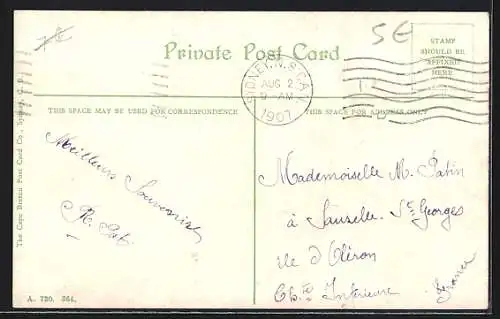 5€
Private Post Card
STAMP
SHOULD BE
AFFIXED
HERE
SYDNEY, N.S. CAN.
AUG 2
9-AM
1907
THIS SPACE MAY BE USED FOR CORRESPONDENCE
THIS SPACE FOR ADDRESS ONLY
The Cape Breton Post Card Co., Sydney, C. B.
Meilleurs Souvenirs
Mademoiselle M. Patin
à Sauzelle. St Georges
île d'Oléron
Ch.te Inférieure
France
A. 720. 364.